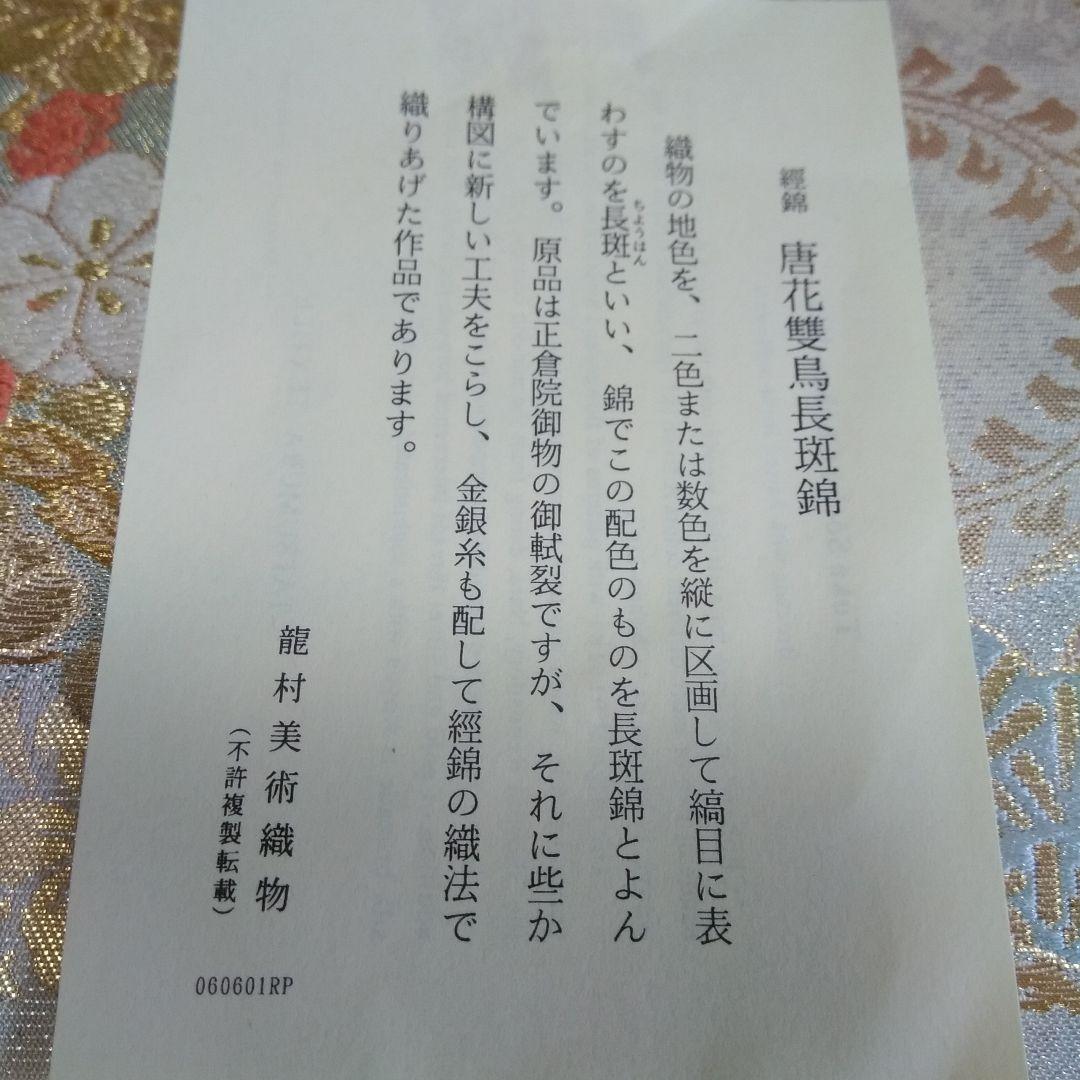 經錦 唐花雙鳥長斑錦
織物の地色を、二色または数色を縦に区画して縞目に表
わすのを長斑といい、錦でこの配色のものを長斑錦とよん
ちょうはん
でいます。原品は正倉院御物の御軾裂ですが、それに些か
構図に新しい工夫をこらし、金銀糸も配して經錦の織法で
織りあげた作品であります。
龍村美術織物
（不許複製転載）
060601RP